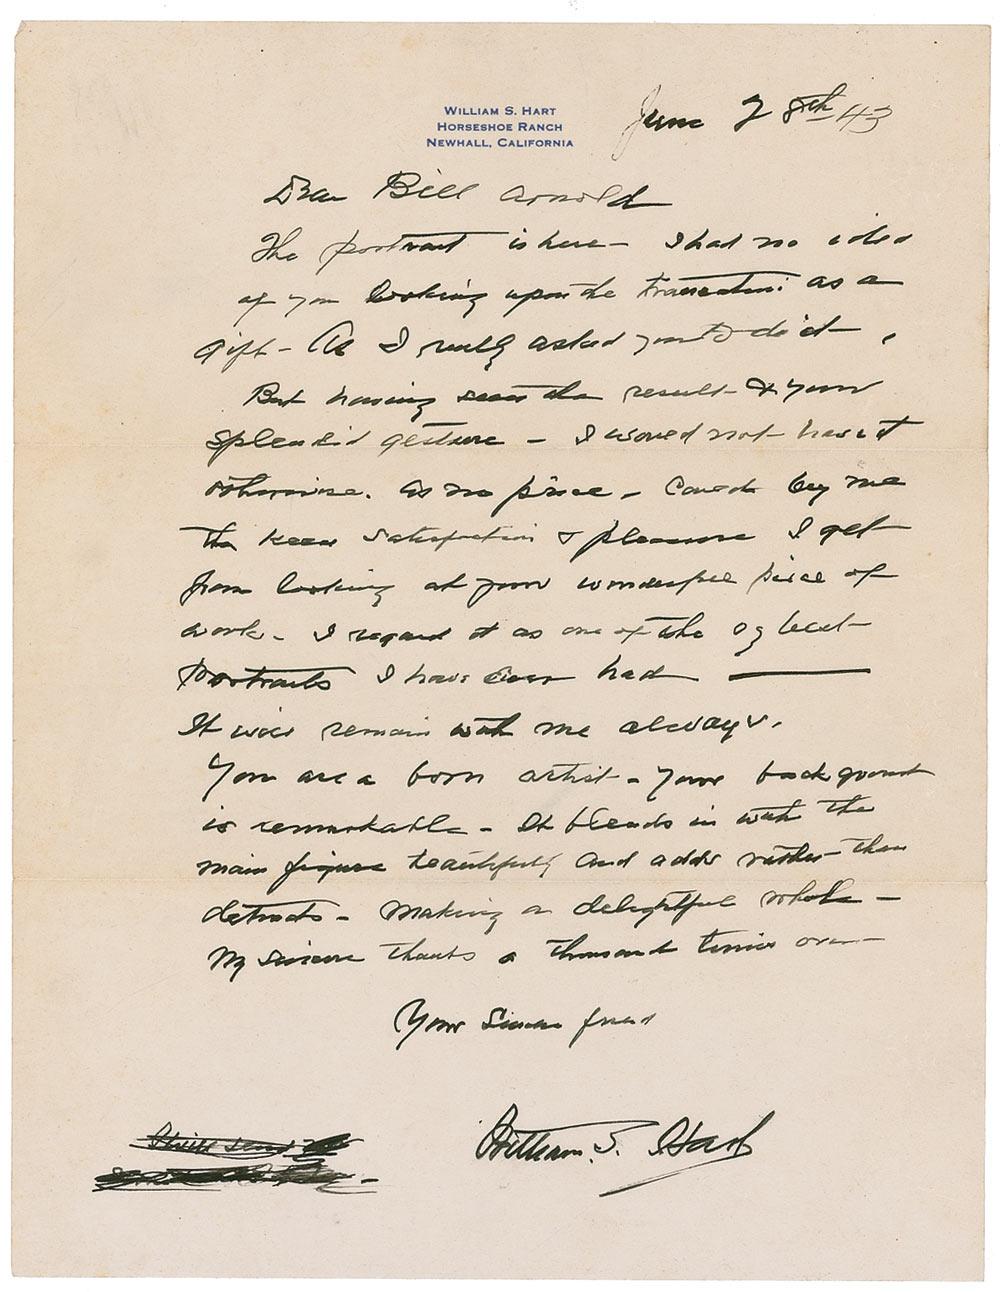 WILLIAM S. HART
HORSESHOE RANCH
NEWHALL, CALIFORNIA
June 28th 43
Dear Bill Arnold
The portrait is here – I had no idea
of you looking upon the transaction as a
gift – As I really asked you to do it.
But having seen the result & your
splendid gesture – I would not have it
otherwise. as no price – could buy me
the keen satisfaction & pleasure I get
from looking at your wonderful piece of
work – I regard it as one of the best
portraits I have ever had —
It will remain with me always.
You are a born artist – your background
is remarkable – It blends in with the
main figure beautifully and adds rather than
detracts – making a delightful whole –
My sincere thanks a thousand times over –
Your sincere friend
William S. Hart